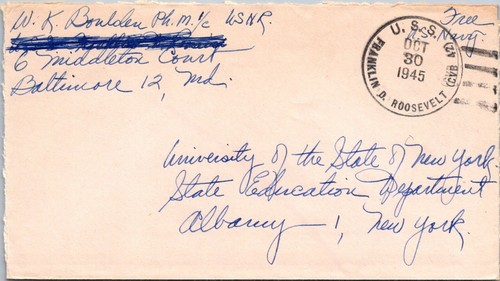 W. K. Boulden Ph. M. 1/c USNR.
6 Middleton Court
Baltimore 12, Md.
Free
U.S. Navy.
U. S. S.
OCT
30
1945
FRANKLIN D. ROOSEVELT (CVB 42)
University of the State of New York.
State Education Department
Albany 1, New York.